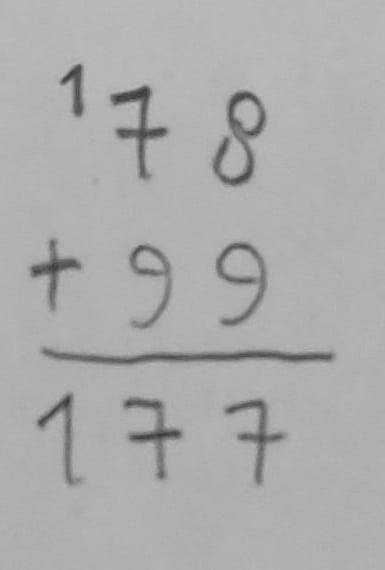 ¹78
+ 99
177